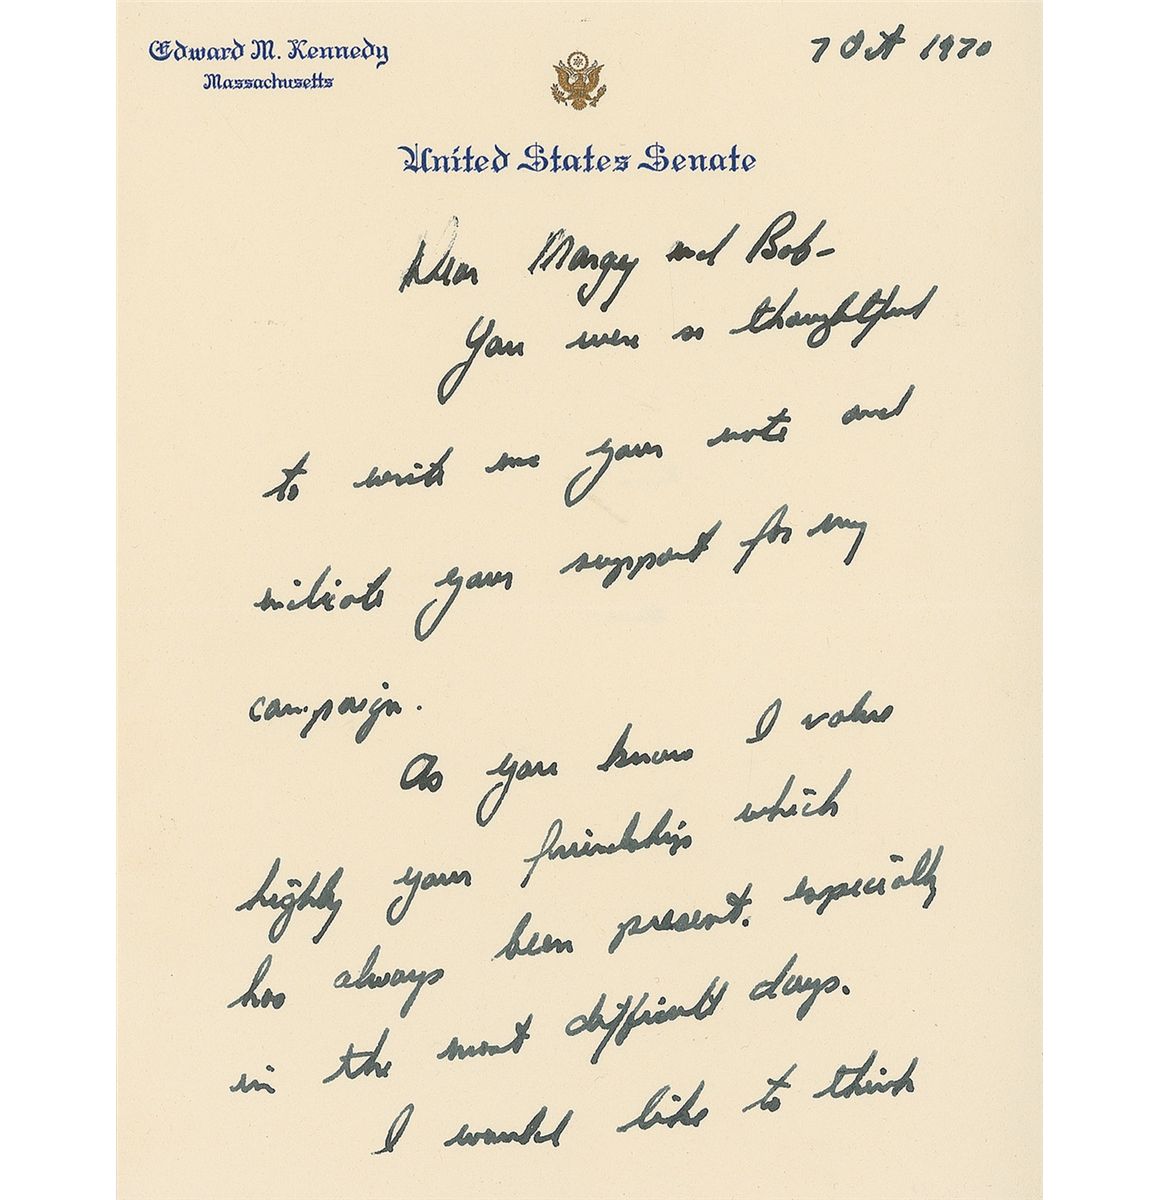 Edward M. Kennedy
Massachusetts
7 Oct 1970
United States Senate
Dear Margy and Bob-
You were so thoughtful
to write me your note and
indicate your support for my
campaign.
As you know I value
highly your friendship which
has always been present. especially
in the most difficult days.
I would like to think